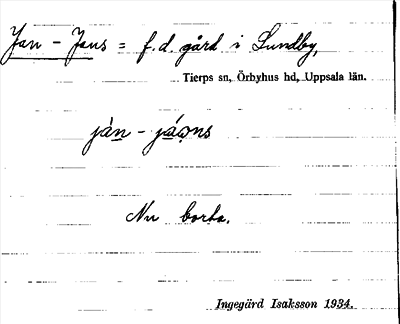 Jan - Jans = f.d. gård i Lundby,
Tierps sn, Örbyhus hd, Uppsala län.
jàn - jáo̤ns
Nu borta.
Ingegärd Isaksson 1934.